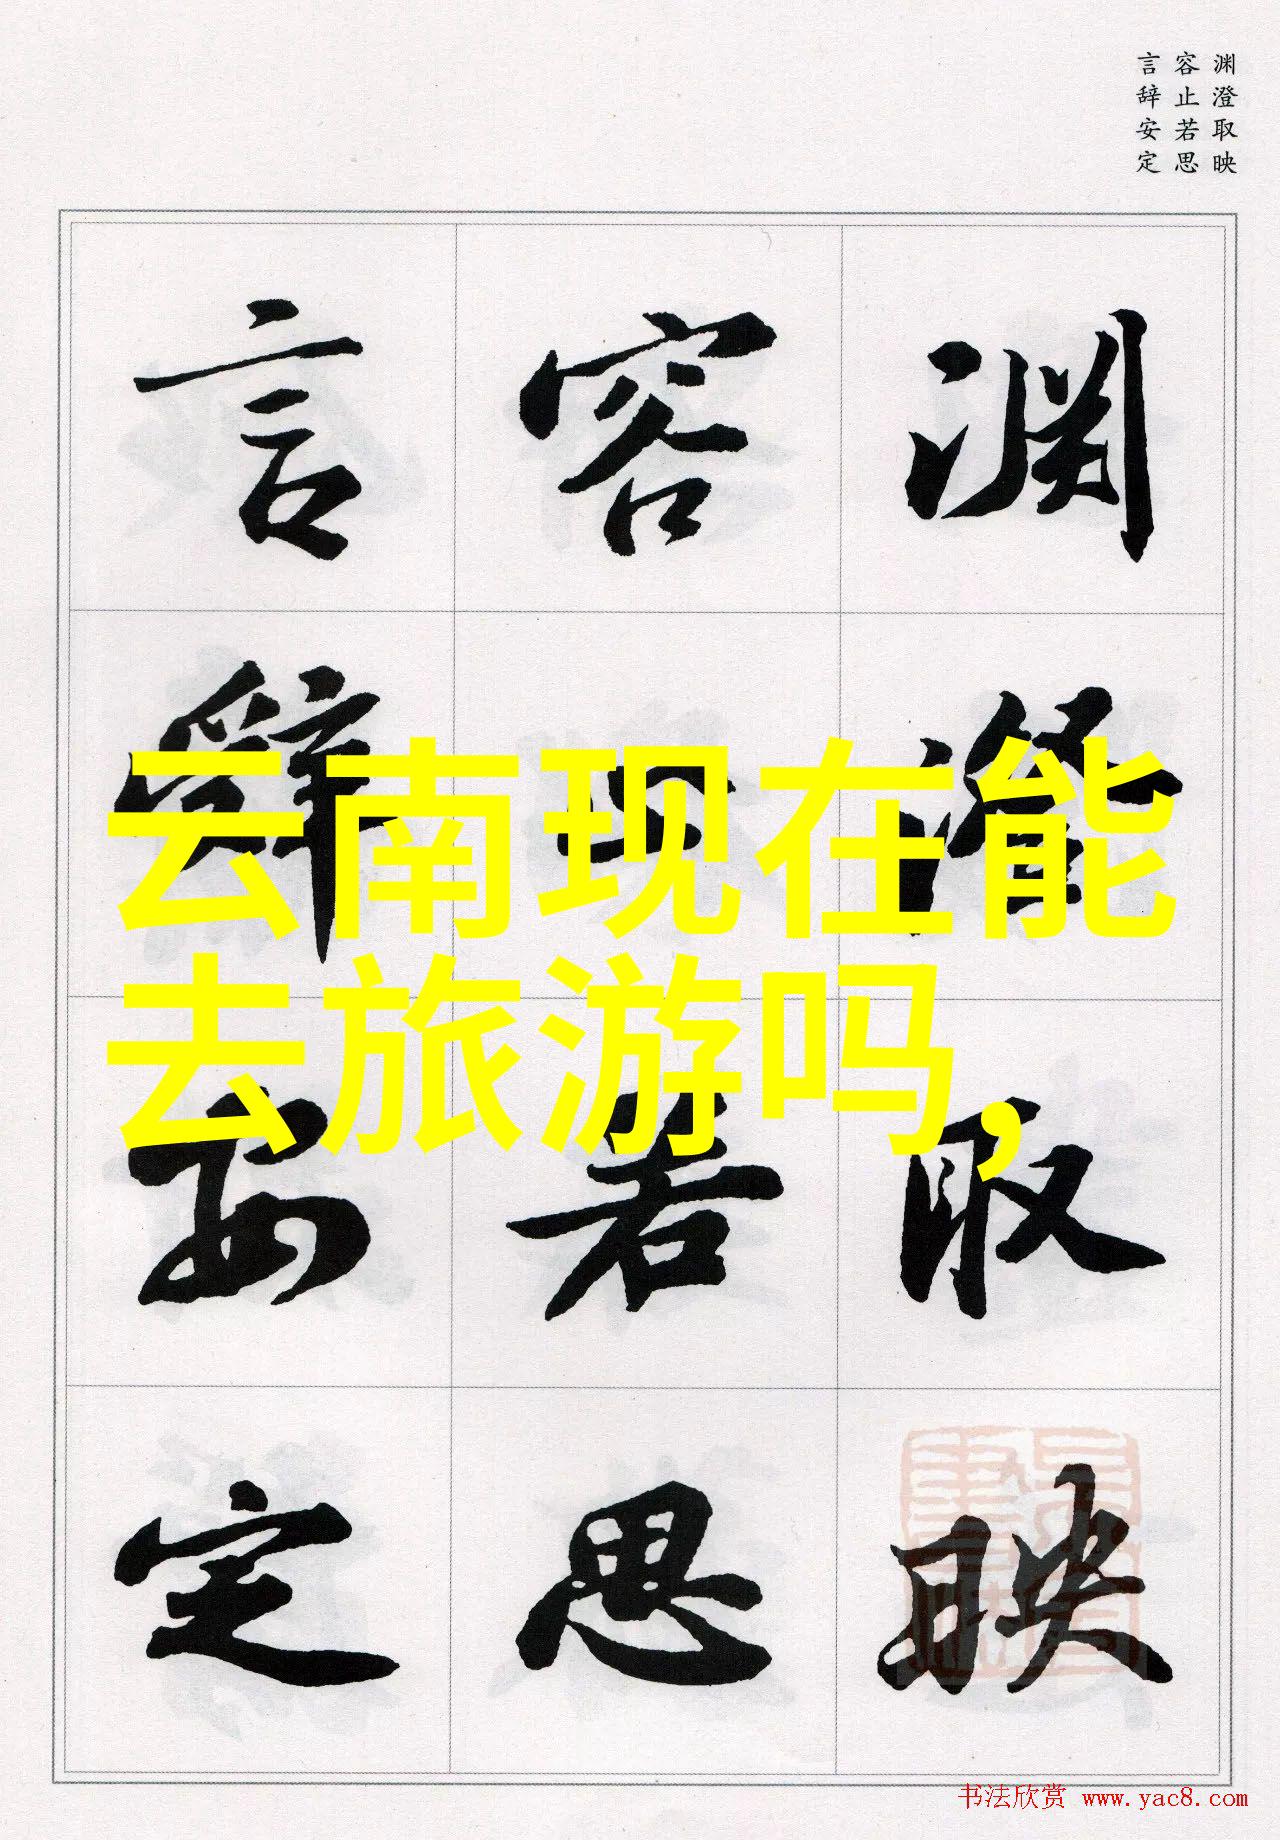 渊澄取映
容止若思
言辞安定
渊澄取映
容止若思
言辞安定
云南现在能
去旅游吗，
书法欣赏 www.yac8.com